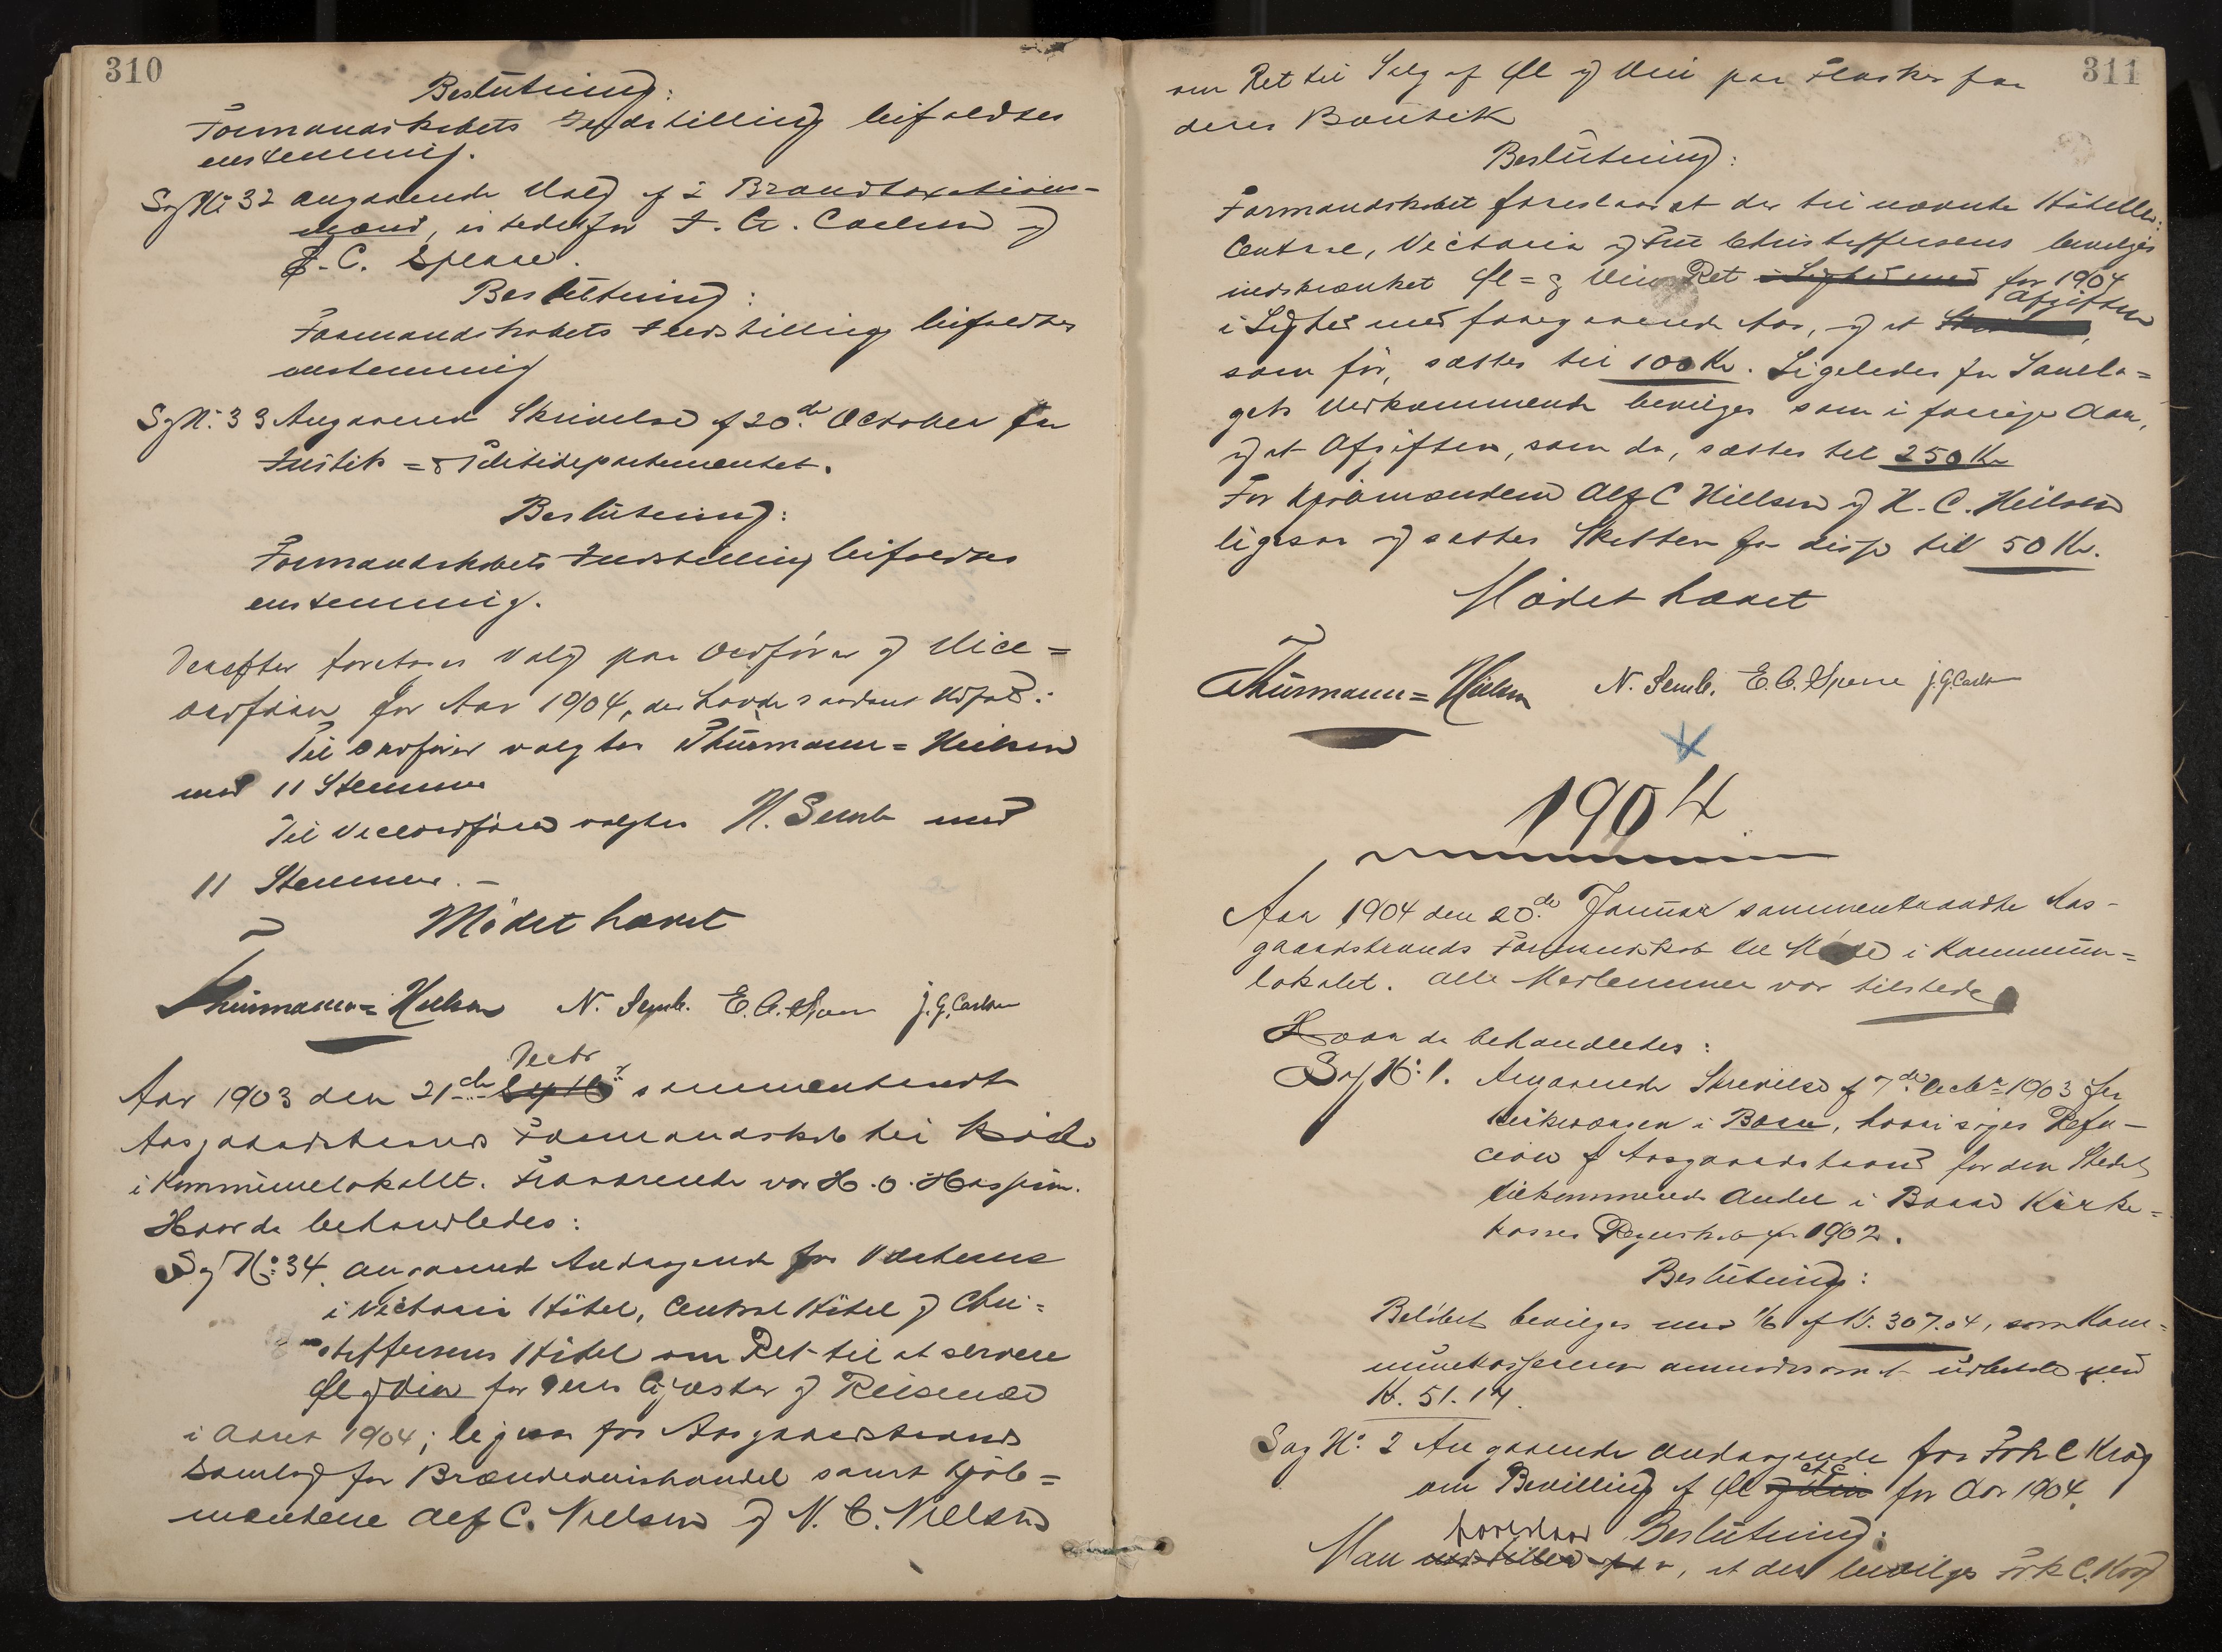 310
Beslutning:
Formandskabets Indstilling bifaldtes
enstemmig.
Sag No 32 angaaende Valg af 2 Brandtaxations-
mænd, istedetfor J. G. Carlsen og
E. C. Sperre.
Beslutning:
Formandskabets Indstilling bifaldtes
enstemmig
Sag No. 33 Angaaende Skrivelse af 20de October fra
Justits- & Politidepartementet.
Beslutning:
Formandskabets Indstilling bifaldtes
enstemmig.
Derefter foretoges Valg paa Ordfører og Vice=
ordfører for Aar 1904, der havde saadant Udfald:
Til Ordfører valgtes Thürmann=Nielsen
med 11 Stemmer
Til Viceordfører valgtes N. Semb med
11 Stemmer. -
Mødet hævet
Thürmann=Nielsen N. Semb. E. C. Sperre J. G. Carlsen
Decbr
Aar 1903 den 21de sammentraadte
Aasgaardstrands Formandskab til Møde
i Kommunelokalet. Fraværende var H. O. Hassum.
Hvor da behandledes:
Sag No: 34. angaaende Andragende fra Værterne
i Victoria Hôtel, Central Hôtel og Chri=
stoffersens Hôtel om Ret til at servere
Øl og Vin for deres Gjæster og Reisende
i Aaret 1904; ligesaa fra Aasgaardstrands
Samlag for Brændevinshandel samt Kjøb=
mændene Alf C. Nielsen og N. C. Nielsen
311
om Ret til Salg af Øl og Vin paa Flasker fra
deres Boutik
Beslutning:
Formandskabet foreslaar at der til nævnte Hôteller:
Central, Victoria og Fru Christoffersens bevilges
indskrænket Øl= & Vin Ret i Lighed med for 1904
i Lighed med foregaaende Aar, og at Afgiften
som før, sættes til 100 Kr. Ligeledes for Samla=
gets Vedkommende bevilges som i forrige Aar,
og at Afgiften, som da, sættes til 250 Kr
For Kjøbmændene Alf C Nielsen og N. C. Nielsen
ligesaa og sættes Skatten for disse til 50 Kr.
Mødet hævet
Thürmann=Nielsen N. Semb. E. C. Sperre J. G. Carlsen
1904
Aar 1904 den 20de Januar sammentraadte Aas-
gaardstrands Formandskab til Møde i Kommune=
lokalet. Alle Medlemmer var tilstede
Hvor da behandledes:
Sag No: 1. Angaaende Skrivelse af 7de Decbr 1903 fra
Kirkevergen i Borre, hvori søges Refu-
sion af Aasgaardstrand for den Stedet
tilkommende Andel i Borre Kirke=
kasses Regnskab for 1902.
Beslutning:
Beløbet bevilges med 1/6 af Kr. 307.04, som Kom=
munekassereren anmodes om at udbetale med
Kr. 51.17.
Sag No: 2 Angaaende Andragende fra Frk C Krog
om Bevilling af Øl og Vin etc for Aar 1904.
Beslutning:
Man foreslaar, at der bevilges Frk C. Krog